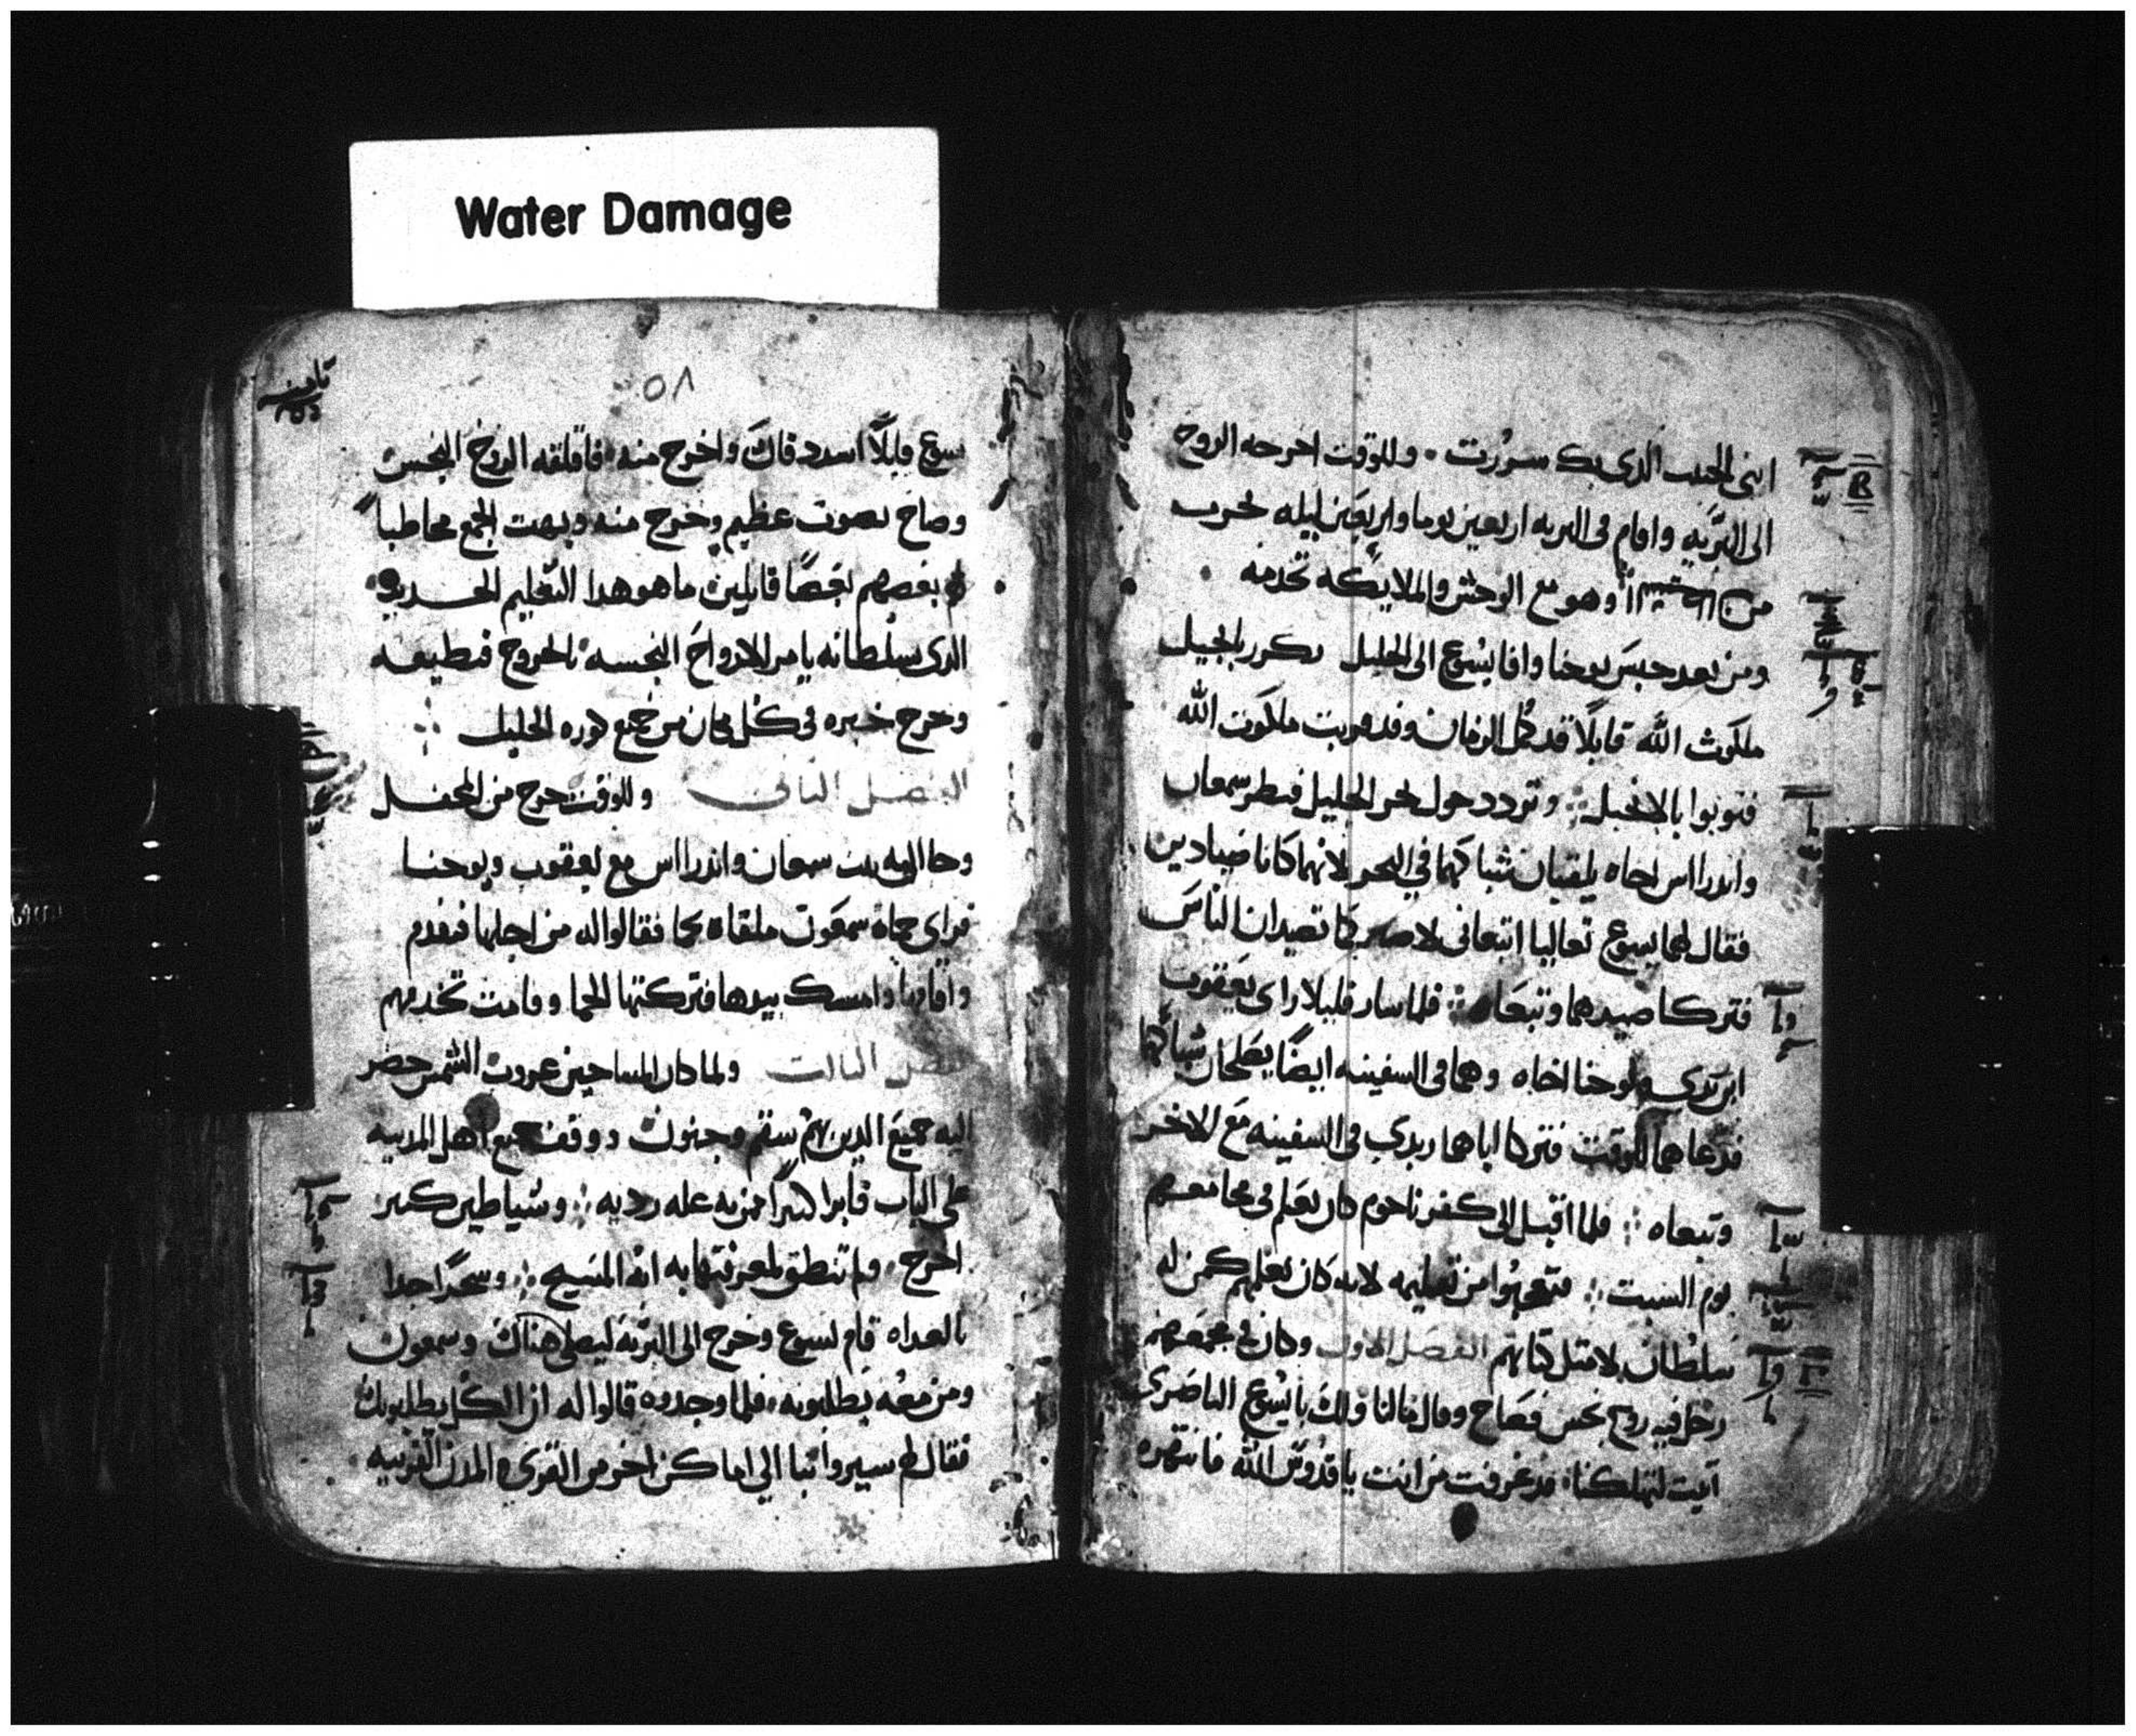 Water Damage
ابنى الحبيب الدى بك سررت ٠ وللوقت اخرجه الروح
الى البريه واقام فى البريه اربعين يوما واربعين ليله يجرب
من وهو مع الوحش والملايكه تخدمه
ومن بعد حبس يوحنا وافا يسوع الى الجليل يكرر بانجيل
ملكوت الله قايلا قد كمل الزمان وقد قربت ملكوت الله
فتوبوا بالانجيل ܀ وتردد حول بحر الجليل فنظر سمعان
واندراس اخاه يلقيان شباكهما في البحر لانهما كانا صيادين
فقال لهما يسوع تعاليا اتبعانى لاصيركما تصيدان الناس
فتركا صيدهما وتبعاه ܀ فلما سار قليلا راى يعقوب
ابن زبدى ويوحنا اخاه وهما فى السفينه ايضا يصلحان شباكهما
فدعاهما للوقت فتركا اباهما زبدى فى السفينه مع الاخر
وتبعاه ܀ فلما اقبل الى كفرناحوم كان يعلم فى مجامعهم
يوم السبت ܀ فتعجبوا من تعليمه لانه كان يعلمهم كمن له
سلطان لا مثل كتابهم الفصل الاول وكان فى مجمعهم
رجل فيه روح نجس فصاح وقال مالنا ولك يا يسوع الناصرى
اتيت لتهلكنا ٠ قد عرفت من انت يا قدوس الله فانتهره
٥٨
يسوع قايلا اسدد فاك واخرج منه ٠ فاقلقه الروح النجس
وصاح بصوت عظيم وخرج منه وبهت الجمع مخاطبا
بعضهم بعضا قايلين ما هو هدا التعليم الحديد
الدى بسلطانه يامر الارواح النجسه بالخروج فتطيعه
وخرج خبره فى كل مكان من جميع كوره الجليل ܀
الفصل الثانى وللوقت خرج من المحفل
وجا الى بيت سمعان واندراس مع يعقوب ويوحنا
فراى حماة سمعون ملقاه بحما فقالوا له من اجلها فتقدم
واقامها وامسك بيدها فتركتها الحما وقامت تخدمهم
الفصل الثالث ولما كان المسا حين غروب الشمس حضر
اليه جميع الدين بهم سقم وجنون ووقف جميع اهل المدينه
على الباب فابرا كثيرا ممن به عله رديه ܀ وشياطين كثير
اخرج ٠ ولم تنطق لمعرفتها به انه المسيح ܀ وسحرا جدا
بالغداه قام يسوع وخرج الى البريه ليصلى هناك وسمعون
ومن معه يطلبونه ٠ فلما وجدوه قالوا له ان الكل يطلبونك
فقال لهم سيروا بنا الى اماكن اخر من القرى والمدن القريبه